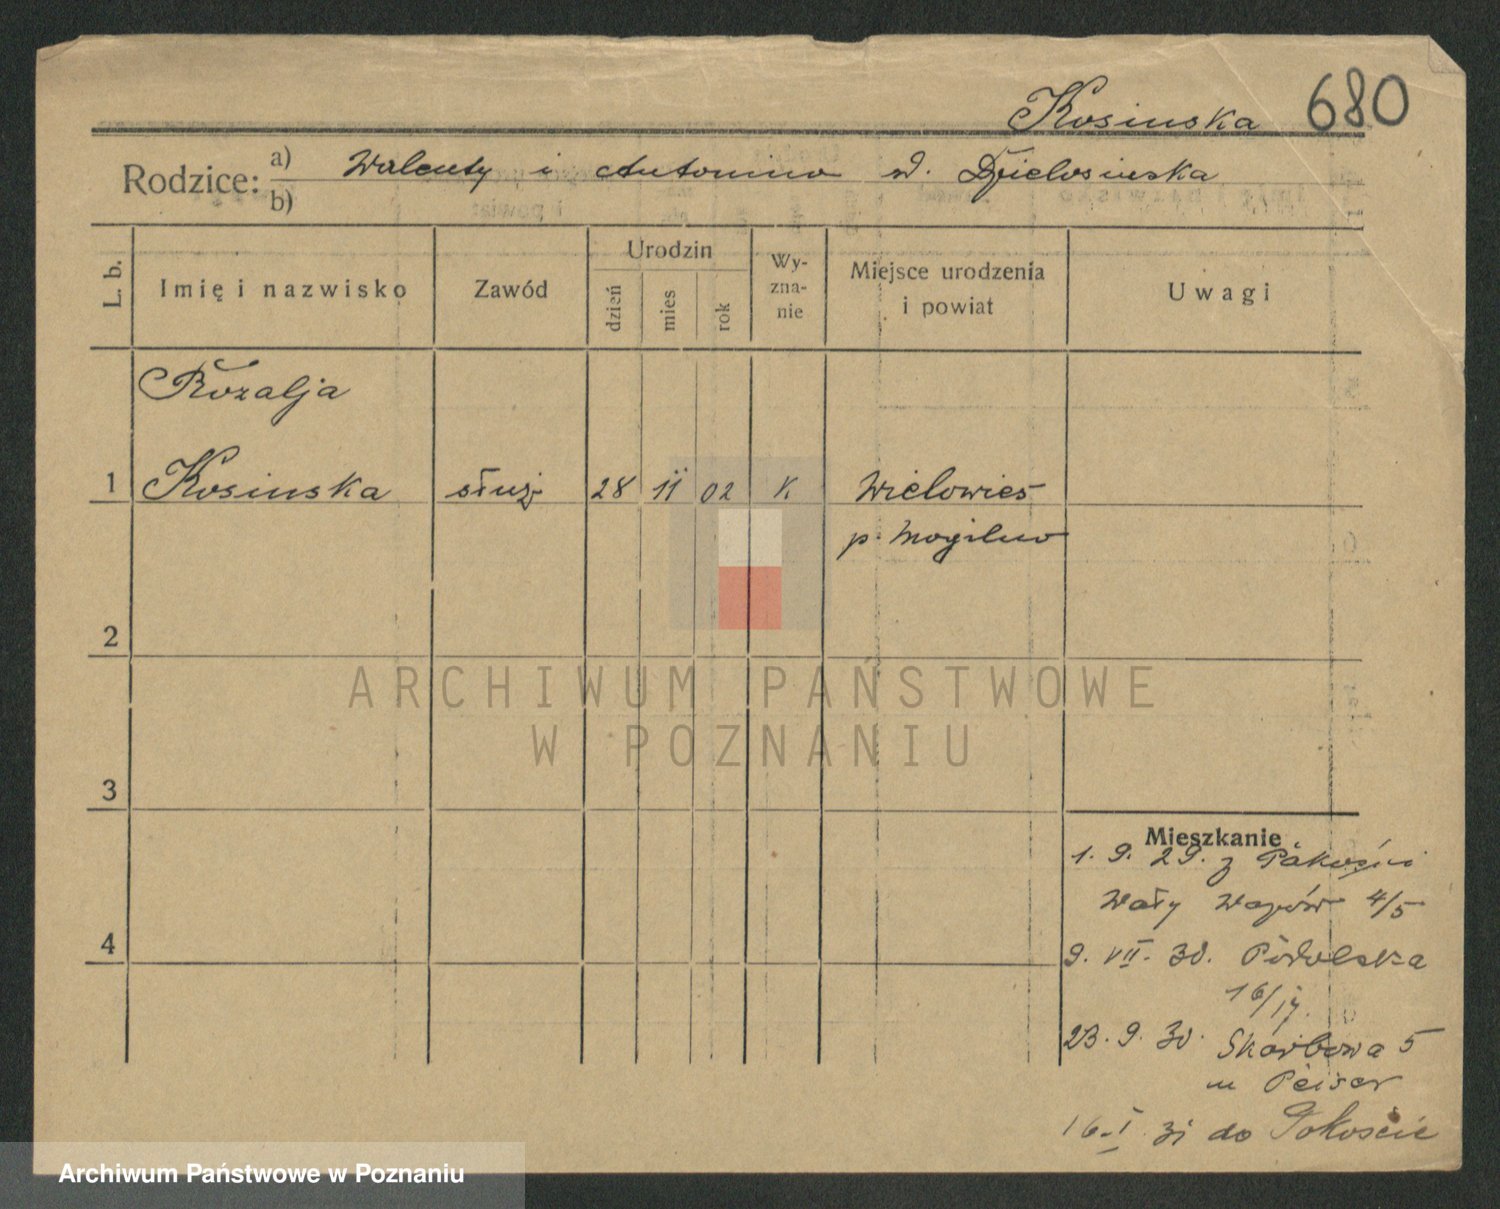 Kosinska 680
Rodzice: a) Walenty i Antonina d. Dzielosinska
b)
L. b.
Imię i nazwisko
Zawód
Urodzin
dzień
mies
rok
Wy-
zna-
nie
Miejsce urodzenia
i powiat
Uwagi
Rozalja
1 Kosinska służ 28 11 02 K Wielowieś
p. Mogilno
2
ARCHIWUM PAŃSTWOWE
W POZNANIU
3
Mieszkanie
1. 9. 29. z Pakości
Wały Wazów 4/5
4
9. VII. 30. Podolska
16/17.
23. 9. 30. Skarbowa 5
u Peiser
16. I. 31 do Pakoście
Archiwum Państwowe w Poznaniu